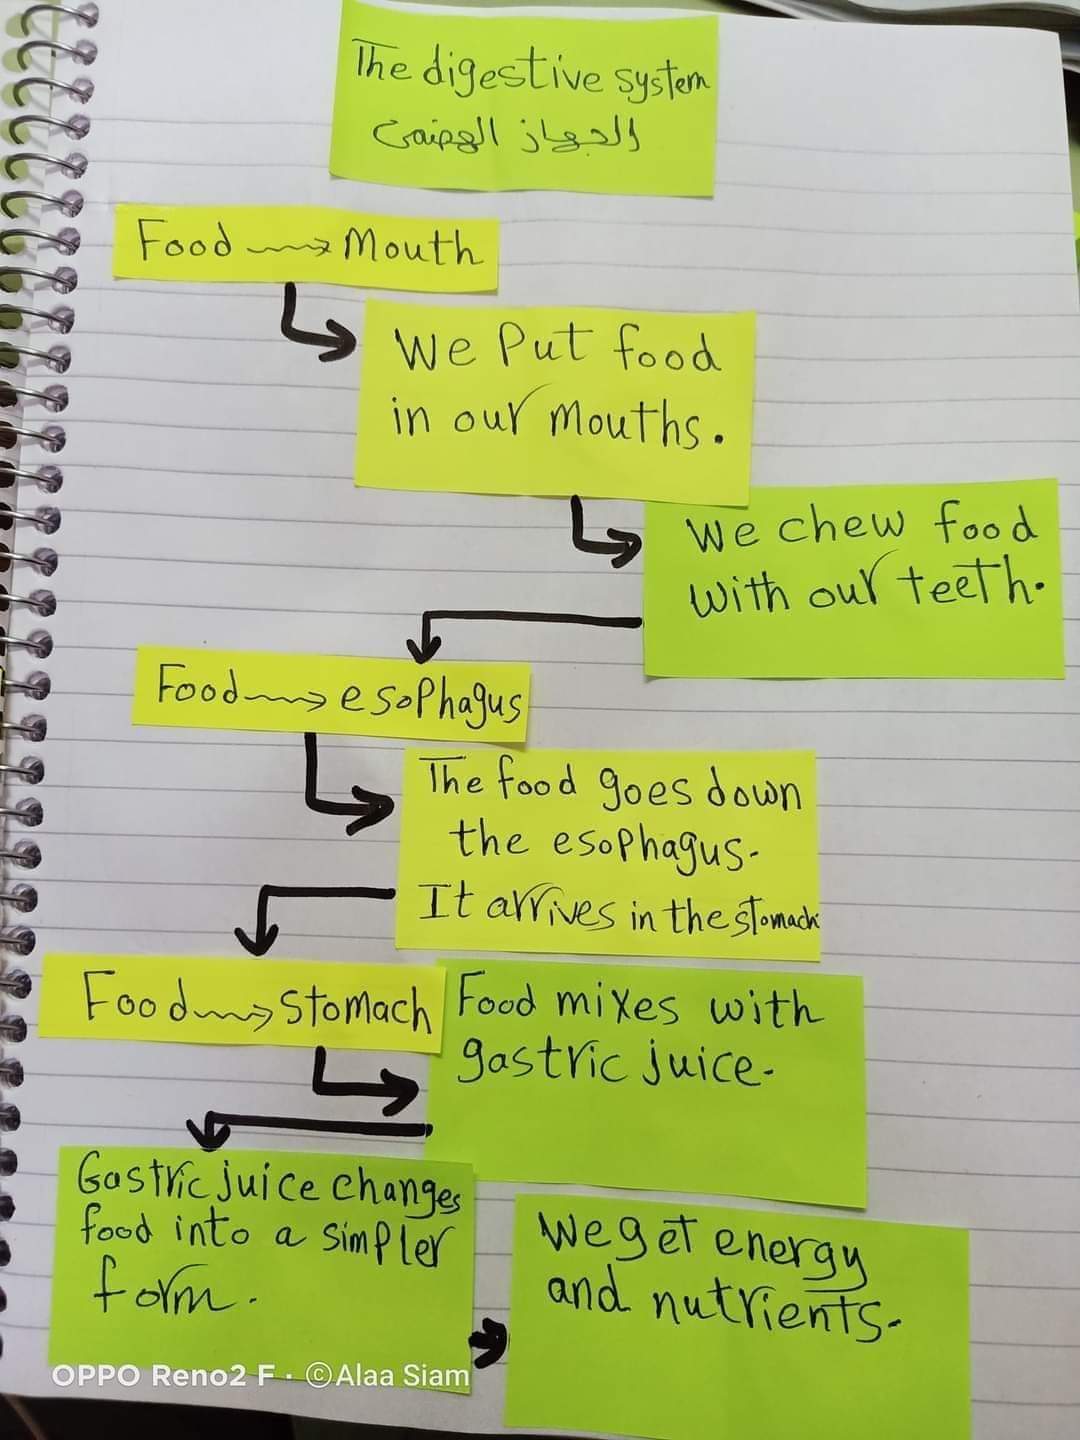 The digestive system
الجهاز الهضمى
Food → Mouth
We Put food
in our mouths.
We chew food
with our teeth.
Food → esophagus
The food goes down
the esophagus.
It arrives in the stomach
Food → Stomach
Food mixes with
gastric juice.
Gastric juice changes
food into a simpler
form.
We get energy
and nutrients.
OPPO Reno2 F · ©Alaa Siam